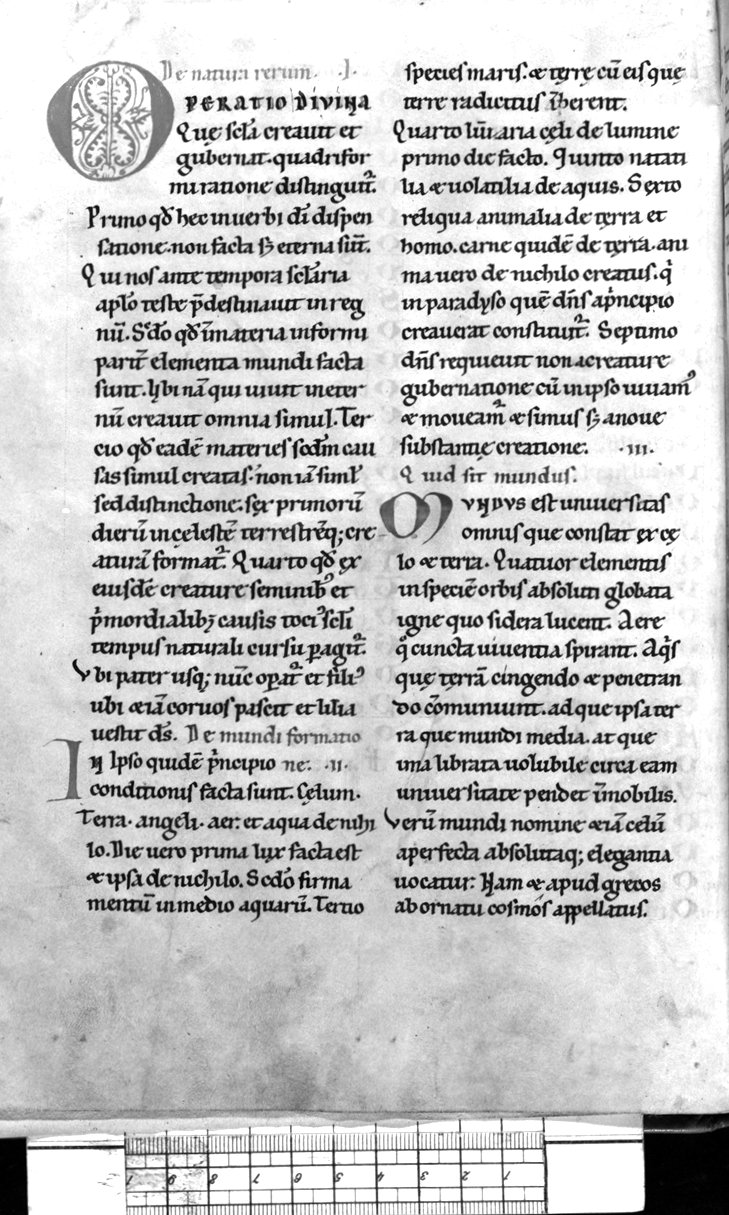 De natura rerum. .I.
OPERATIO DIVINA
Que scła creauit et
gubernat. quadrifor
mi ratione distinguit᷑.
Primo qđ hec in uerbi dī dispen
satione. non facta sꝫ eterna sūt᷑.
Qui nos ante tempora sclaria
aplo teste p̄destinauit in reg
nū. Scdo qđ ī materia informi
parit᷑ elementa mundi facta
sunt. Ubi nā qui uiuit in eter
nū creauit omnia simul. Ter
cio qđ eadē materies scdm cau
sas simul creatas. non iā siml
sed distinctione. sęx primorū
dierū in celestē terrestrēq; cre
aturā format᷑. Quarto qđ ęx
eiusdē creature seminibꝰ et
p̄mordialibꝫ causis tociꝰ scli
tempus naturali cursu ꝑagit᷑.
Vbi pater usq; nūc oꝑat᷑ et filiꝰ
ubi æiā coruos pascit et lilia
uestit ds̄. De mundi formatio
IN Ipso quidē p̄ncipio ne. .II.
conditionis facta sunt. Cęlum.
Terra. angeli. aer. et aqua de nihi
lo. Die uero prima lux facta est
æ ipsa de nichilo. Scdo firma
mentū in medio aquarū. Tertio
species maris. æ tęrrę cū eis quę
terre radicitus īherent.
Quarto lūīaria cęli de lumine
primo die facto. Quinto natati
lia æ uolatilia de aquis. Sęxto
reliqua animalia de tęrra et
homo. carne quidē de tęrra. ani
ma uero de nichilo creatus. q̇
in paradyso quē dn̄s apͥncipio
creauerat constituit᷑. Septimo
dn̄s requieuit non a creature
gubernatione cū in ipso uiuamꝰ
æ moueam᷑ æ simus sꝫ a noue
substantię creatione. .III.
Quid sit mundus.
MVNDVS est uniuersitas
omnis que constat ęx cę
lo æ terra. Quatuor elementis
in speciē orbis absoluti globata
igne quo sidera lucent. Aere
q̊ cuncta uiuentia spirant. Aqͥs
quę tęrrā cingendo æ penetran
do cōmuniunt. ad que ipsa ter
ra que mundi media. at que
ima librata uolubile circa eam
uniuersitate pendet īmobilis.
Verū mundi nomine æiā celū
a perfecta absolutaq; elegantia
uocatur. Nam æ apud grecos
ab ornatu cosmós appellatus.
1 2 3 4 5 6 7 8 9